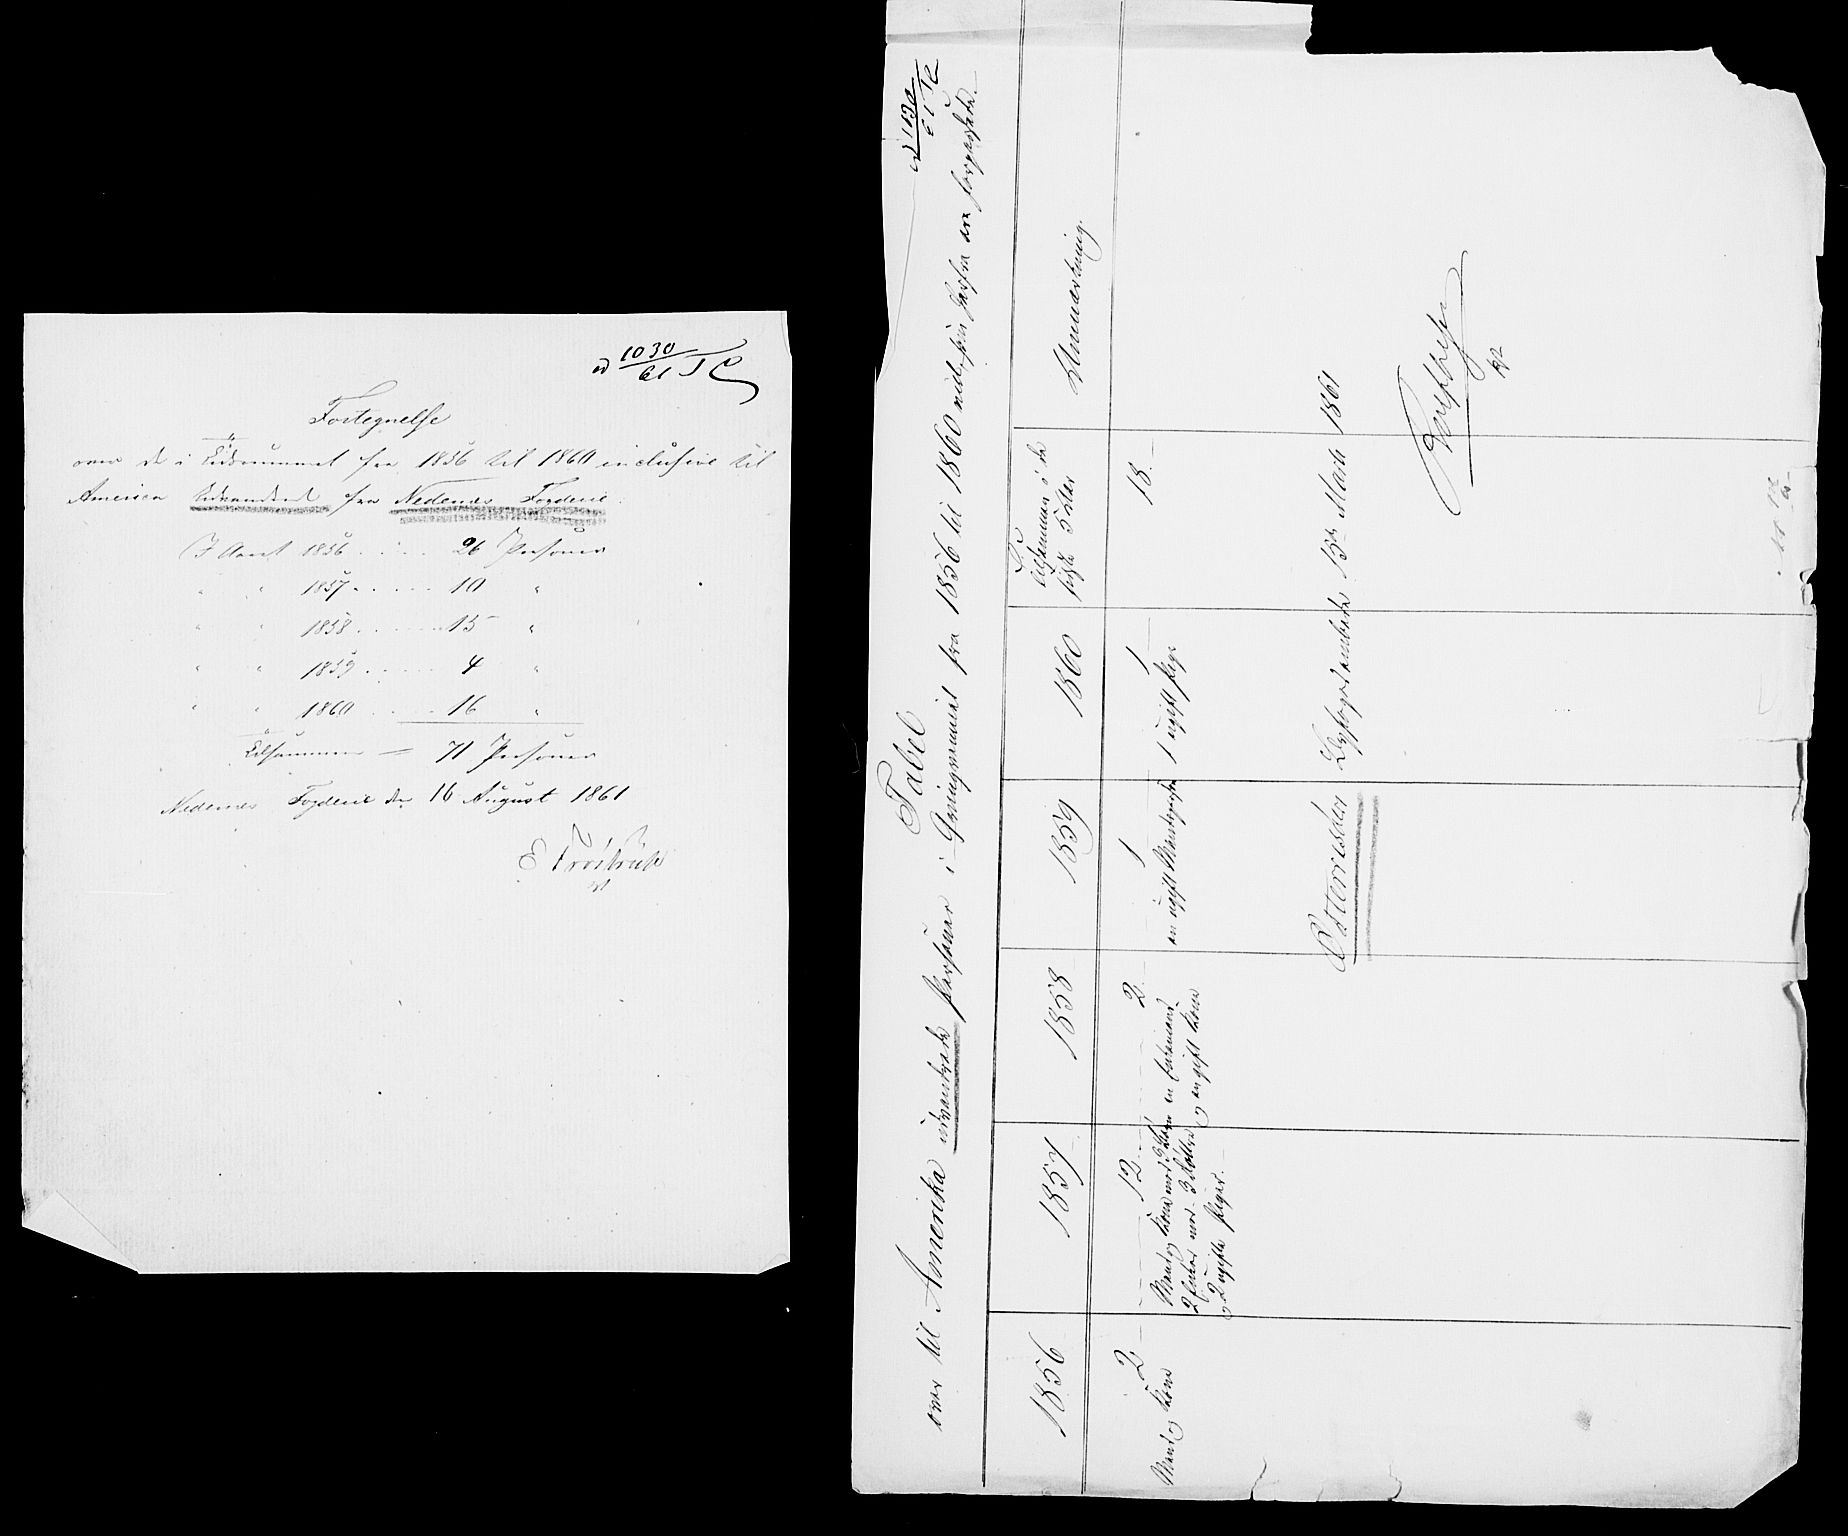 ad 1030/61 J C
Fortegnelse
over de i Tidsrummet fra 1856 til 1860 inclusive til
America udvandrede fra Nedenes Fogderie.
I Aaret 1856 . . . . 26 Personer
" " 1857 . . . . . 10 "
" " 1858 . . . . . 15 "
" " 1859 . . . . . 4 "
" " 1860 . . . . 16 "
Tilsammen = 71 Personer
Nedenes Fogderie den 16 August 1861
ad 1030/61 J C
Tabel
over til Amerika udvandrede Personer i Gjerrestad fra 1856 til 1860
1856
1857
1858
1859
1860
Tilsammen i de
sidste 5 Aar
Anmærkning.
2
Mand og Kone
12.
Mand og Kone med
2 med 3 Døttre og en gift Kone
og 2 ugifte Piger.
2
1
en ugift Mandsperson
1
1 ugift Pige
18.
Østerriisøer Byfogedembede 15de Marts 1861